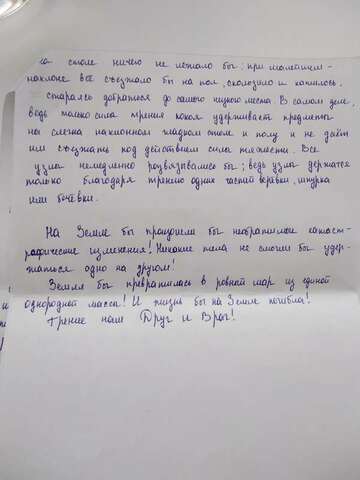 на столе ничего не лежало бы; при малейшем
наклоне всё съезжало бы на пол, скользило и катилось,
стараясь добраться до самого низкого места. В самом деле,
ведь только сила трения покоя удерживает предметы
на слегка наклонном гладком столе и полу и не даёт
им съезжать под действием силы тяжести. Все
узлы немедленно развязывались бы; ведь узлы держатся
только благодаря трению одних частей верёвки, шнурка
или бечёвки.
На Земле бы произошли бы необратимые катаст-
рофические изменения! Никакие тела не смогли бы удер-
жаться одно на другом!
Земля бы превратилась в ровный шар из единой
однородной массы! И жизнь бы на Земле погибла!
Трение наш Друг и Враг!